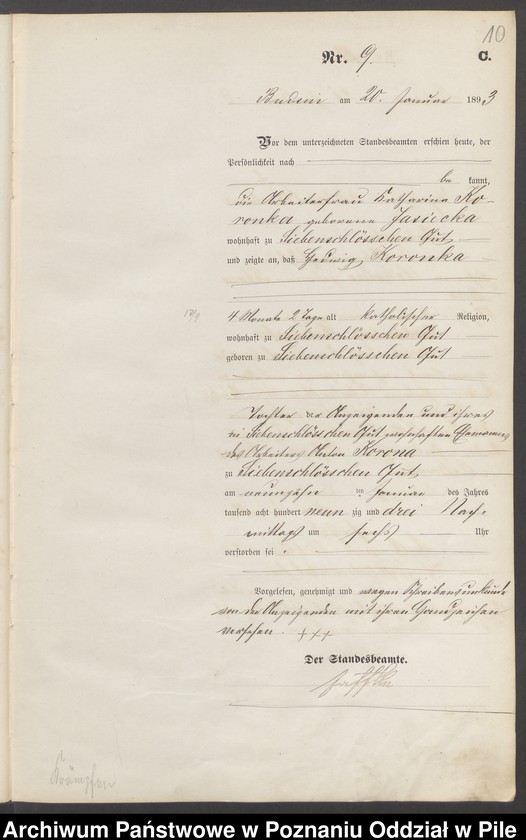 10
Nr. 9. C.
Budsin am 20. Januar 1893
Vor dem unterzeichneten Standesbeamten erschien heute, der
Persönlichkeit nach
be kannt,
die Arbeiterfrau Katharina Ko-
ronka geborene Jasiecka
wohnhaft zu Siebenschlösschen Gut
und zeigte an, daß Hedwig Koronka
4 Monate 2 Tage alt katholischer Religion,
wohnhaft zu Siebenschlösschen Gut
geboren zu Siebenschlösschen Gut
Tochter der Anzeigenden und ihres
in Siebenschlösschen Gut wohnhaften Ehemannes
des Arbeiters Anton Korona
zu Siebenschlösschen Gut
am neunzehn ten Januar des Jahres
tausend acht hundert neun zig und drei Nach-
mittags um sechs Uhr
verstorben sei.
Vorgelesen, genehmigt und wegen Schreibensunkunde
von der Anzeigenden mit ihren Handzeichen
versehen. +++
Der Standesbeamte.
Krämpfen
Archiwum Państwowe w Poznaniu Oddział w Pile